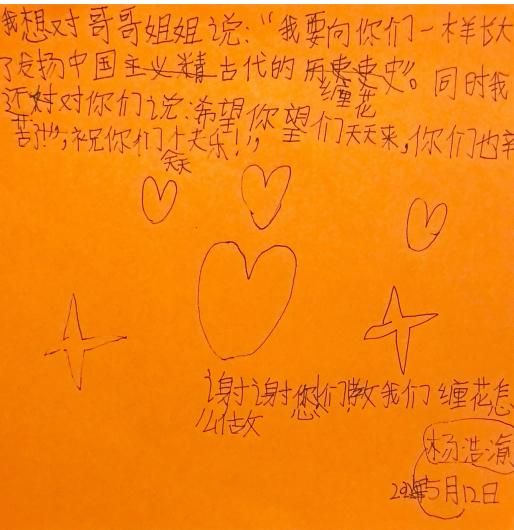 我想对哥哥姐姐说:“我要向你们一样长大
了发扬中国主义精古代的历史”。同时我
缠花
还对对你们说:希望你望们天天来,你们也辛
苦了!”,祝你们个夫乐!”
天天
谢谢您们教我们缠花怎
么做
杨浩渝
5月12日